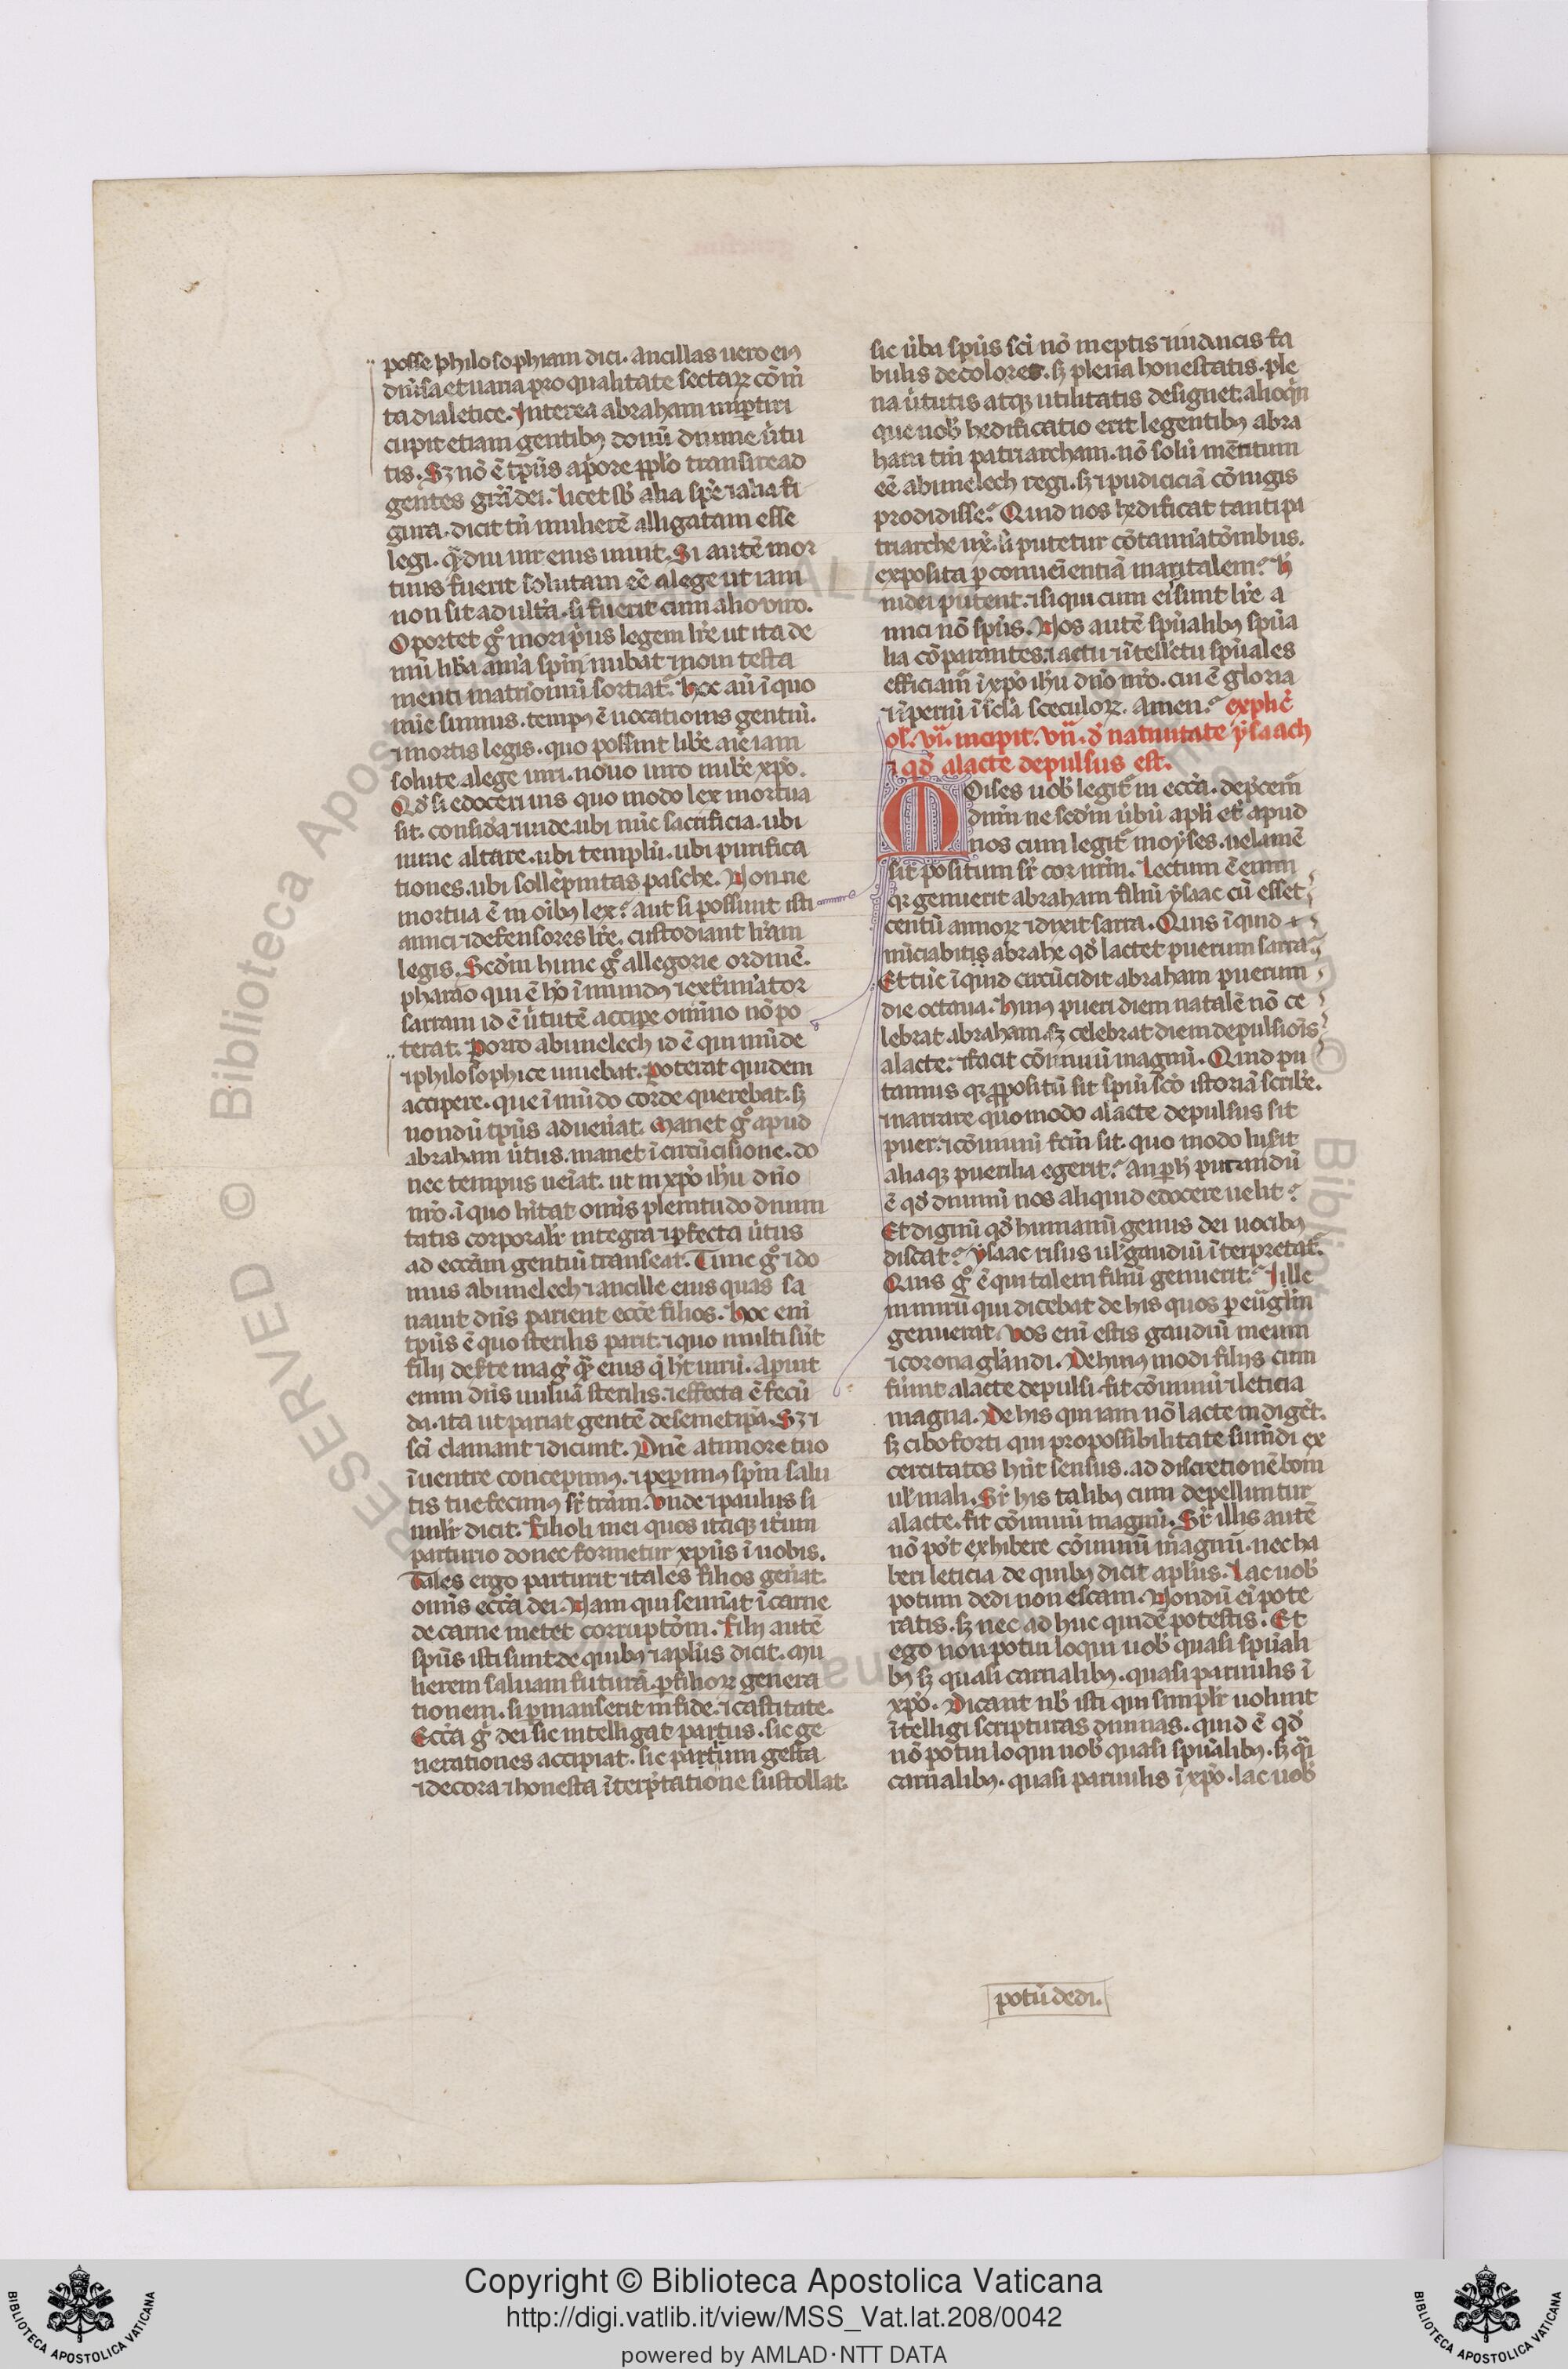 posse philosophiam dici. ancillas uero eiꝰ
diu͛sa et uaria pro qualitate sectaꝝ co̅m̅
ta dialetice. Interea abraham imp̲tiri
cupit etiam gentibꝫ donu̅ diuine u͛tu
tis. Sꝫ no̅ e̅ tp̅us a p͛ore pp̅lo transire ad
gentes gr̅a̅ dei. licet sb̅ alia sp̅e ⁊ alia fi
gura. dicit tn̅ muliere̅ alligatam esse
legi. qᷓ diu uir eius uiuit. Si aute̅ mor
tuus fuerit solutam ee̅ a lege ut iam
non sit adult͛a. si fuerit cum alio uiro.
Oportet gͦ mori p͛us legem lr̅e ut ita de
mu̅ lib͛a ai̅a spu̅i nubat ⁊ noui testa
menti matrioniu̅ sortiat᷑. hoc au̅ i̅ quo
nu̅c sumus. tempꝰ e̅ uocationis gentiu̅.
⁊ mortis legis. quo possint lib͛e ai̅e iam
solute a lege uiri. nouo uiro nub͛e xp̅o.
Qd̅ si edoceri uis quo modo lex mortua
sit. consid͛a ⁊ uide. ubi nu̅c sacrificia. ubi
nunc altare. ubi templu̅. ubi purifica
tiones. ubi solle̅pnitas pasche. Nonne
mortua e̅ in oi̅bꝫ lex? aut si possunt isti
amici ⁊ defensores lr̅e. custodiant lr̅am
legis. Sed̅m hunc gͦ allegorie ordine̅.
pharao qui e̅ ho̅ i̅mundꝰ ⁊ ext͛minator
sarram id e̅ u͛tute̅ accipe om̅ino no̅ po
terat. Porro abimelech id e̅ qui mu̅de
⁊ philosophice uiuebat. poterat quidem
accipere. que i̅ mu̅do corde querebat. sꝫ
nondu̅ tp̅us aduen͛at. Manet gͦ apud
abraham u͛tus. manet i̅ circu̅cisione. do
nec tempus uei̅at. ut in xp̅o ih̅u dn̅o
nr̅o. i̅ quo h̅itat om̅is plenitudo diuini
tatis corporalr̅ integra ⁊ p̲fecta u͛tus
ad ecc̅am gentiu̅ transeat. Tunc gͦ ⁊ do
mus abimelech ⁊ ancille eius quas sa
nauit dn̅s parient ecc̅e filios. hoc eni̅
tp̅us e̅ quo sterilis parit. ⁊ quo multi su̅t
filij des͛te mag̅ qᷓ eius q̅ h̅t uiru̅. Aperuit
enim dn̅s uuluā sterilis. ⁊ effecta e̅ fecu̅
da. ita ut pariat gente̅ de semetip̅a. Sꝫ ⁊
sc̅i clamant ⁊ dicunt. Dn̅e a timore tuo
i̅ uentre concepimꝰ. ⁊ pep̲imꝰ spm̅ salu
tis tue fecimꝰ sr̅ tr̅am. vnde ⁊ paulus si
milr̅ dicit. filioli mei quos itaqꝫ it͛um
parturio donec formetur xp̅us i̅ uobis.
Tales ergo parturit ⁊ tales filios gen͛at
om̅is ecc̅a dei. Nam qui semi̅at i̅ carne
de carne metet corruptōm. filij aute̅
sp̅us isti sunt de quibꝫ ⁊ ap̅lus dicit. Mu
lierem saluam futurā. p̲ filioꝝ genera
tionem. si p̲manserit in fide. ⁊ castitate.
Ecc̅a gͦ dei sic intelligat partus. sic ge
nerationes accipiat. sic partuum gesta
⁊ decora ⁊ honesta i̅terp̅tatione sustollat.
sic u͛ba sp̅us sc̅i no̅ ineptis ⁊ iudaicis fa
bulis decolores. sꝫ plena honestatis. ple
na u͛tutis atqꝫ utilitatis designet. alioqi̅n
que nob̅ hedificatio erit legentibꝫ abra
ham tm̅ patriarcham. no̅ solu̅ me̅titum
ee̅ abimelech regi. sꝫ ⁊ pudiciciā co̅iugis
prodidisse? Quid nos hedificat tanti pa
triarche ux̅. si putetur co̅taminatōnibus.
exposita p̲ coniue̅ientiā maritalem? h̅
iudei putent. ⁊ si qui cum eis sunt lr̅e a
mici no̅ sp̅us. Nos aute̅ sp̅ualibꝫ sp̅ua
lia co̅parantes. ⁊ actu ⁊ i̅tellectu sp̅uales
efficiam᷑ i̅ xp̅o ih̅u dn̅o nr̅o. cui e̅ gloria
⁊ i̅p̲iu̅ i̅ sc̅la sceculoꝝ. amen. explic̅
ol̅. vi. incipit. vii. d̅ natiuitate ysaach
⁊ qd̅ a lacte depulsus est.
Moises uob̅ legit᷑ in ecc̅a. dep̅cem᷑
dn̅m ne sed̅m u͛bu̅ apl̅i et͛ apud
nos cum legit᷑ moyses. uelame̅
sit positum sr̅ cor nr̅m. lectum e̅ enim
qꝛ genuerit abraham filiu̅ ysaac cu̅ esset
centu̅ annoꝝ ⁊ dixit sarra. Quis i̅quid
nu̅ciabitis abrahe qd̅ lactet puerum sarra
Et tu̅c i̅quid circu̅cidit abraham puerum
die octaua. huiꝰ pueri diem natale̅ no̅ ce
lebrat abraham. sꝫ celebrat diem depulsiois̅
a lacte. ⁊ facit co̅uiuiu̅ magnu̅. Quid pu
tamus qꝛ p̲positu̅ sit sp̅ui sc̅o istoriā scrib͛e.
⁊ narrare quomodo a lacte depulsus sit
puer. ⁊ co̅uiuiu̅ fc̅m sit. quo modo lusit
aliaqꝫ puerilia egerit? An p̲ h̅ putandu̅
e̅ qd̅ diuinu̅ nos aliquid edocere uelit?
Et dignu̅ qd̅ humanu̅ genus dei uocibꝫ
discat? ysaac risus ul̅ gaudiu̅ i̅terpretat᷑.
Quis gͦ e̅ qui talem filiu̅ genuerit? Ille
nimiru̅ qui dicebat de his quos p̲ eu̅gl̅m
genuerat. vos eni̅ estis gaudiu̅ meum
⁊ corona gl̅andi. De huiꝰ modi filijs cum
fiunt a lacte depulsi. fit co̅uiuiu̅ ⁊ leticia
magna. De his qui iam no̅ lacte indige̅t.
sꝫ cibo forti qui pro possibilitate sum̅di ex
cercitatos hn̅t sensus. ad discretione̅ boni
ul̅ mali. Sr̅ his talibꝫ cum depelluntur
a lacte. fit co̅uiuiu̅ magnu̅. Sr̅ illis aute̅
no̅ pōt exhibere co̅uiuiu̅ magnu̅. nec ha
beri leticia de quibꝫ dicit ap̅lus. Lac uob̅
potum dedi non escam. Nondu̅ ei̅ pote
ratis. sꝫ nec ad huc quide̅ potestis. Et
ego non potui loqui uob̅ quasi sp̅uali
bꝫ sꝫ quasi carnalibꝫ. quasi paruulis i̅
xp̅o. Dicant nb̅ isti qui simplr̅ uolunt
i̅telligi scripturas diuinas. quid e̅ qd̅
no̅ potui loqui uob̅ quasi sp̅ualibꝫ. sꝫ qᷓi
carnalibꝫ. quasi paruulis i̅ xp̅o. lac uob̅
potu̅ dedi.
RESERVED © Biblioteca Apostolica
© Biblioteca
Copyright © Biblioteca Apostolica Vaticana
http://digi.vatlib.it/view/MSS_Vat.lat.208/0042
powered by AMLAD·NTT DATA
BIBLIOTECA APOSTOLICA VATICANA
BIBLIOTECA APOSTOLICA VATICANA